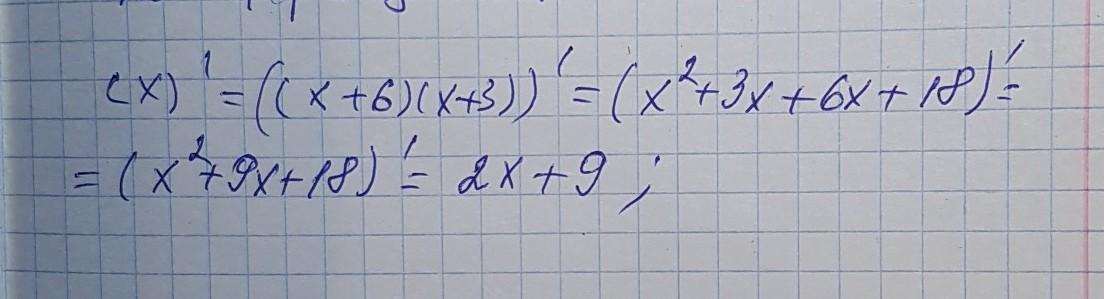 (x)' = ((x+6)(x+3))' = (x²+3x+6x+18)' =
= (x²+9x+18)' = 2x+9 ;